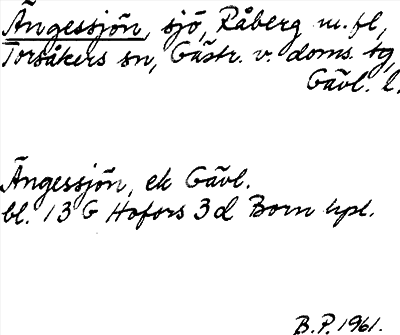 Ängessjön, sjö, Råberg m. fl,
Torsåkers sn, Gästr. v. doms. tg,
Gävl. l.
Ängessjön, ek Gävl.
bl. 13 G Hofors 3d Born upl.
B.P. 1961.